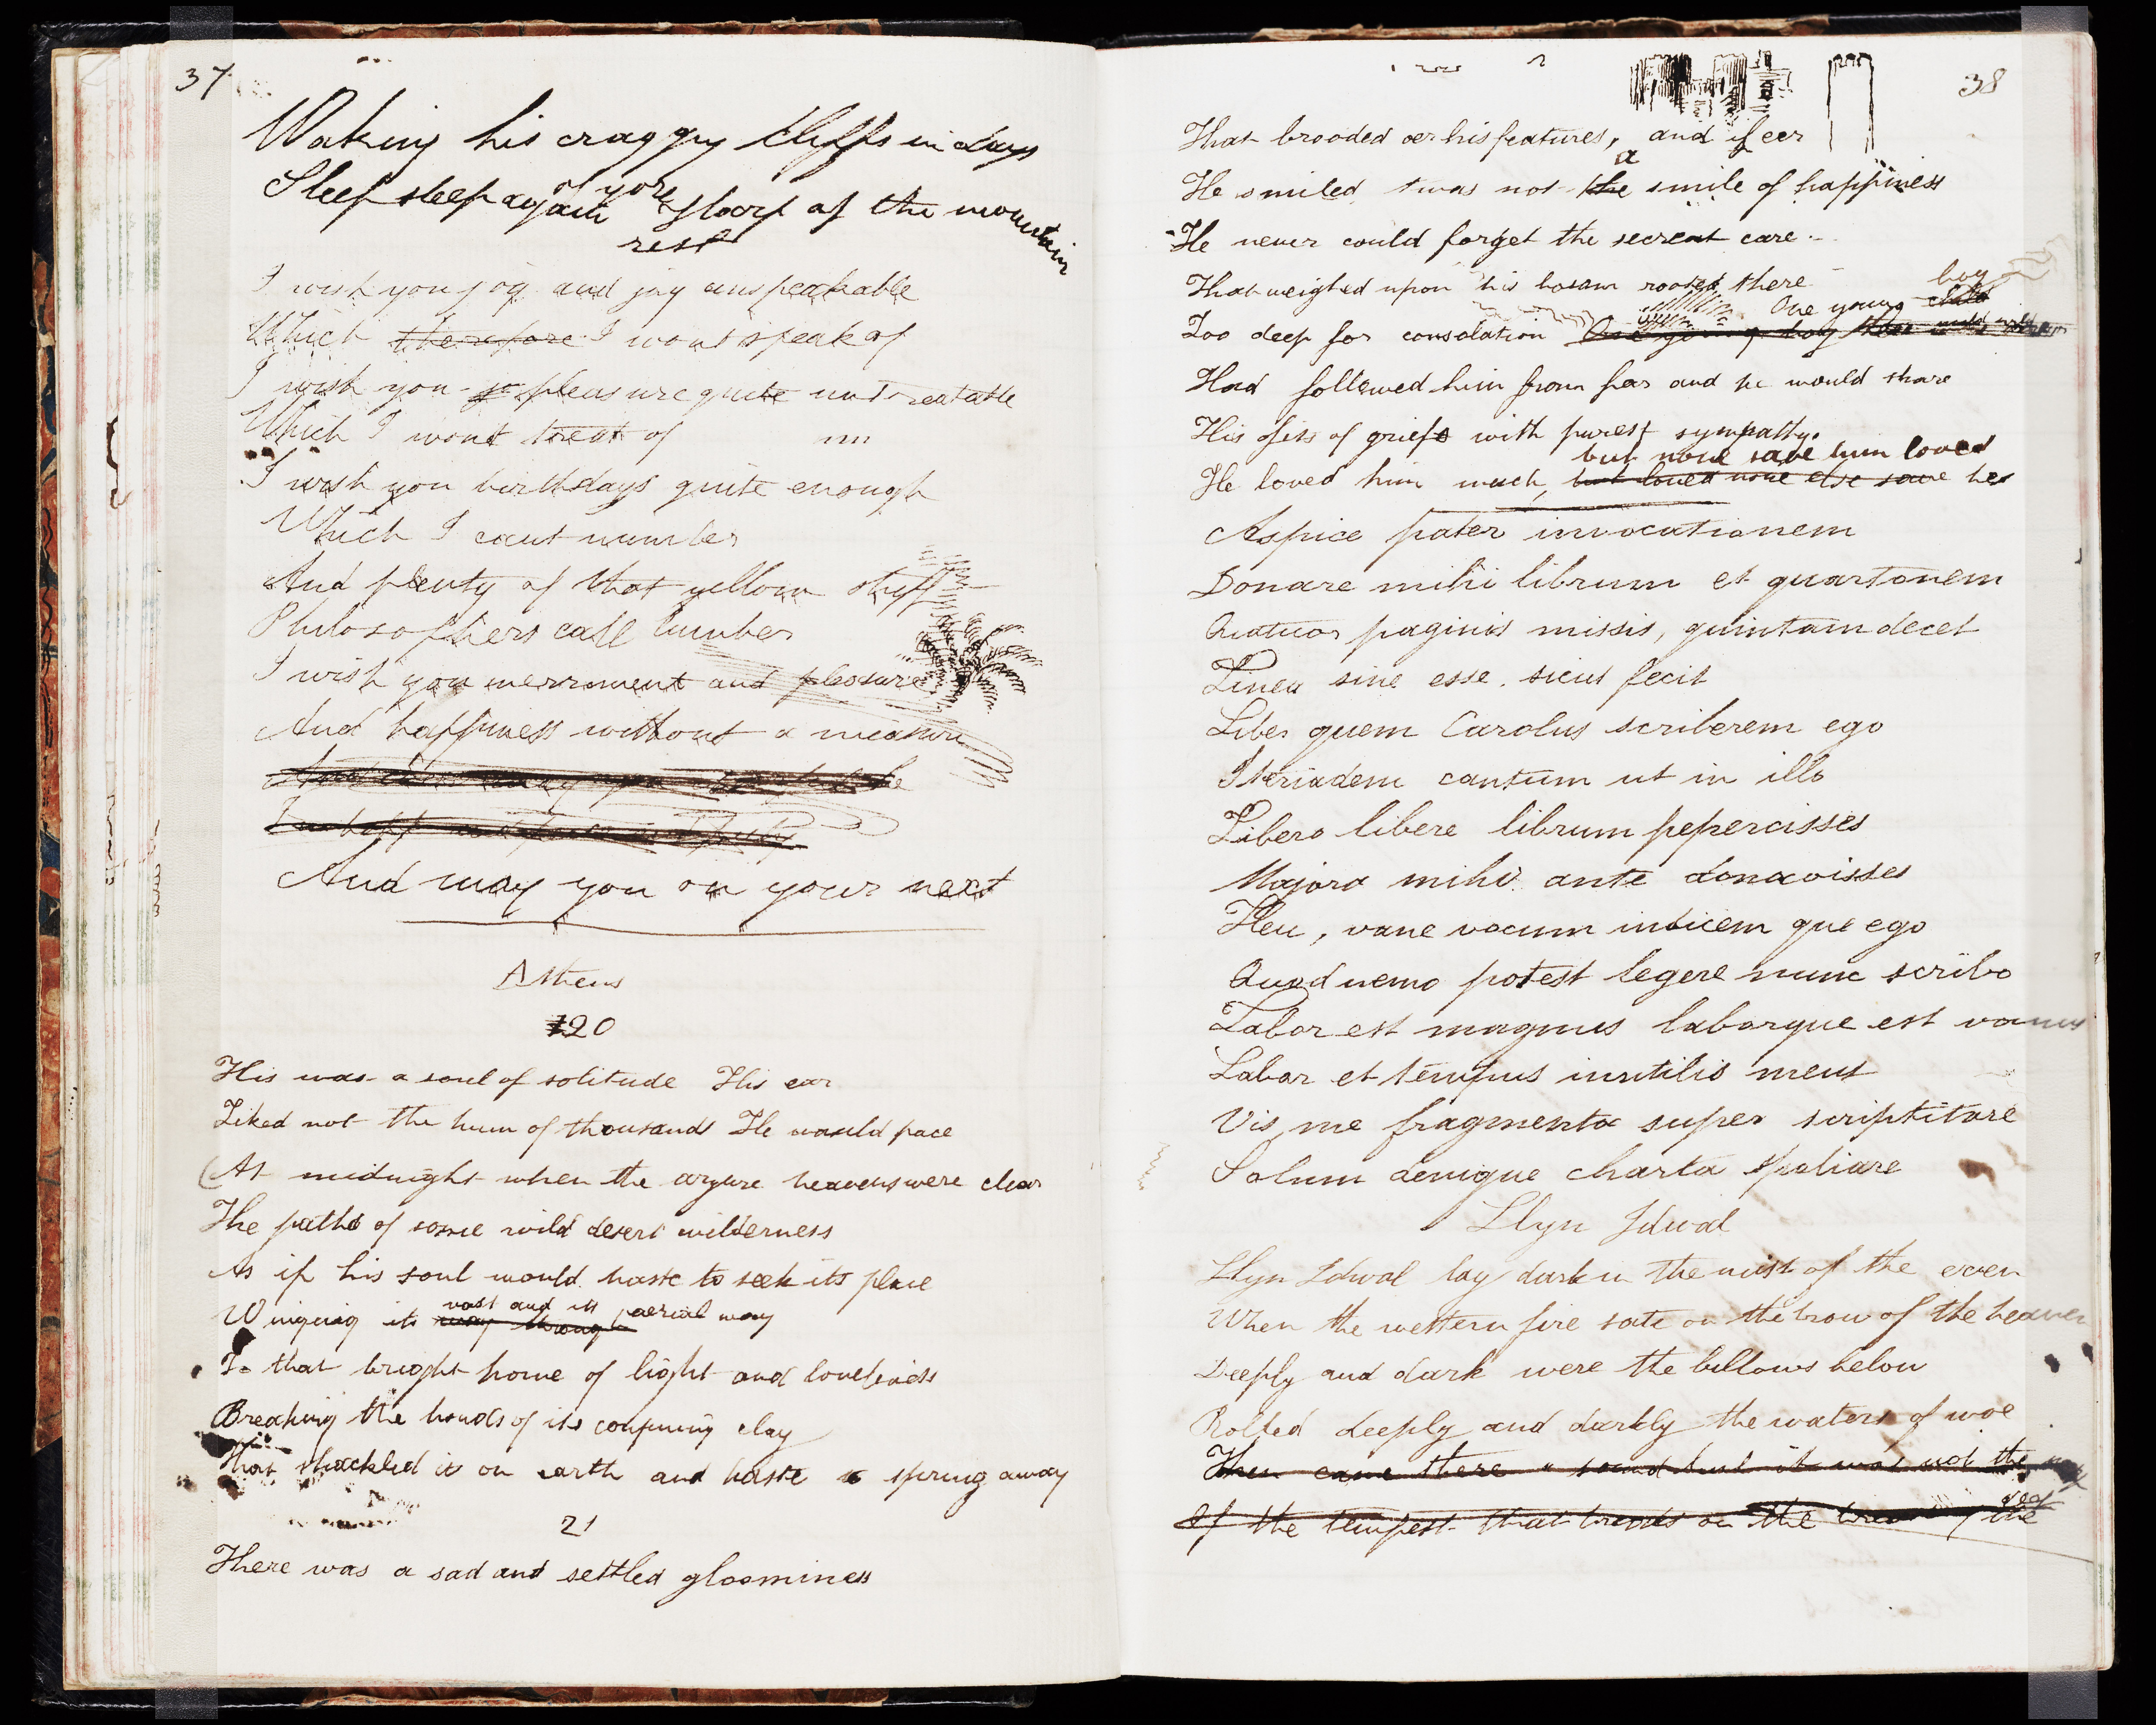 37
Waking his craggy cliffs in days
of yore
Sleep sleep again sleep of the mountain
rest
I wish you joy and joy unspeakable
Which therefore I wont speak of
I wish you pleasure quite untreatable
Which I wont treat of
I wish you birthdays quite enough
Which I cant number
And plenty of that yellow stuff
Philosophers call lumber
I wish you merriment and pleasure
And happiness without a measure
And may you on your next
Athens
120
His was a soul of solitude His ear
Liked not the hum of thousands He would pace
(At midnight when the azure heavens were clear
The paths of some wild desert wilderness
As if his soul would haste to seek its place
Winging its way through vast and its aerial way
To that bright home of light and loveliness
Breaking the bonds of its confining clay
That shackled it on earth and haste to spring away
21
There was a sad and settled gloominess
38
That brooded oer his features, and if eer
He smiled twas not the a smile of happiness
He never could forget the secreat care
That weighed upon his bosom rooted there
boy
One young child
Too deep for consolation One young boy
Had followed him from far and he would share
His fits of grief with purest sympathy.
but none save him loved
He loved him much, but loved none else save her
Aspice pater invocationem
Donare mihi librum et quartonem
Quatuor paginis missis, quintam decet
Linea sine esse. sicut fecit
Liber quem Carolus scriberem ego
Iteriadem cantum ut in illo
Libero libere librum pepercisses
Majora mihi ante donavisses
Heu, vane vocum indicem que ego
Quod nemo potest legere nunc scribo
Labor est magnus laborque est vanus
Labor et tempus inutilis meus
Vis me fragmenta super scriptitare
Solum denique charta spoliare
Llyn Idwal
Llyn Idwal lay dark in the mist of the even
When the western fire sate on the brow of the heaven
Deeply and dark were the billows below
Rolled deeply and darkly the waters of woe
Then came there a sound but it was not the
Of the tempest that breaks on the breast of the